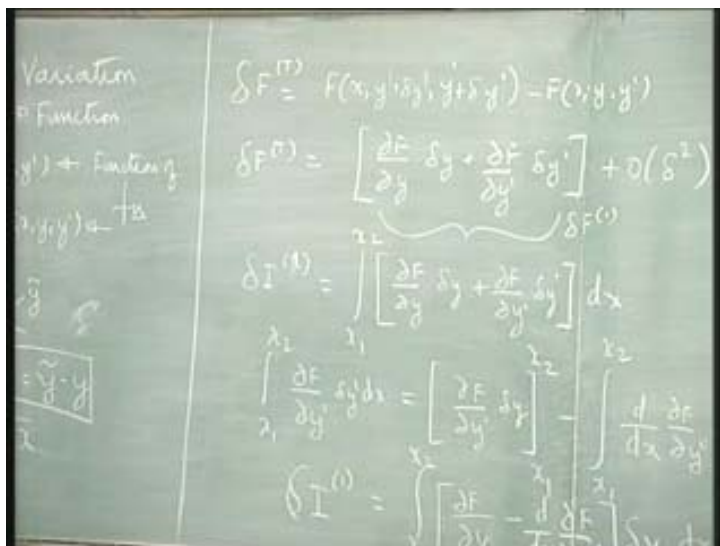 Variation
Function
y') ← Function of
x, y, y') ←
ỹ
= ỹ - y
δF^(T) = F(x, y+δy, y'+δy') - F(x, y, y')
δF^(T) = [∂F/∂y δy + ∂F/∂y' δy'] + O(δ²)
δF^(1)
δI^(1) = ∫_{x₁}^{x₂} [∂F/∂y δy + ∂F/∂y' δy'] dx
∫_{x₁}^{x₂} ∂F/∂y' δy' dx = [∂F/∂y' δy]_{x₁}^{x₂} - ∫_{x₁}^{x₂} d/dx ∂F/∂y'
δI^(1) = ∫^{x₂} [∂F/∂y - d/dx ∂F/∂y'] δy dx